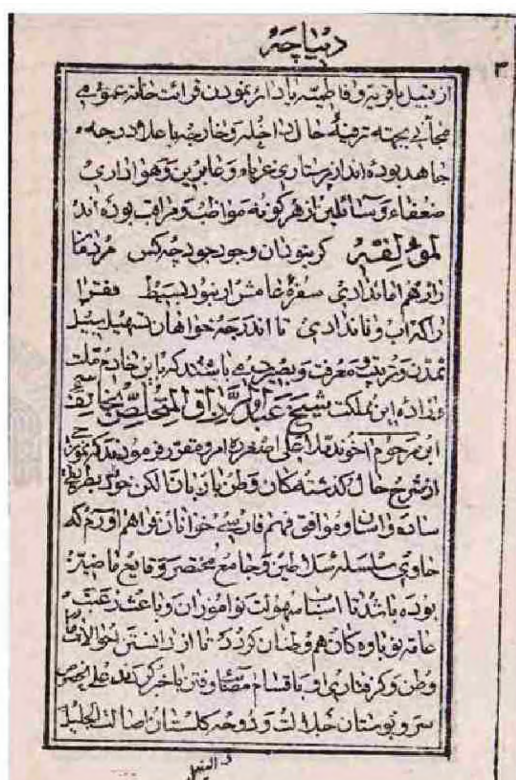 دیباچه
۳
از قبیل باقریه و فاطمیه با دائر نمودن قرائت خانه عمومی
مجانی بجهته ترفیهٔ حال داخله و خارجه با علا درجه
جاهد بوده اند از پرستاری غرباء و عابرین و هواداری
ضعفاء و سائلین از هر گونه مواظب و مراقب بوده اند
لمؤلفه گر نبودان وجود جود چه کس مردمان
را از هم امانداری سفره عامش ار نبود بسیط فقرا
را که اب و نانداری تا اندرجه خواهان تسهیل سبیل
تمدن و تربیت و معرفت و بصیرت می باشند که باین خادم ملت
و فداده این مملکت شیخ عبد الرزاق المتخلص بخائف
ابن مرحوم اخوند ملا علی اصغر امر و مقرر فرمودند که
از شرح حال گذشته گان وطن بازبان الکن خود بطریق
ساده و اسان و موافق فهم فارسی خوانان فراهم اورم که
حاوی سلسله سلاطین و جامع مختصر وقایع ماضیه
بوده باشد تا اسباب سهولت نواموزان و باعث رغبت
عامه نوباوه کان هم وطنان کردد که تا از دانستن احوالات
وطن و گرفتاری او باقسام مصائب و فتن باخبر کردند علی الخصوص
سرو بوستان جلالت و دوحه کلستان اصالت الجلیل